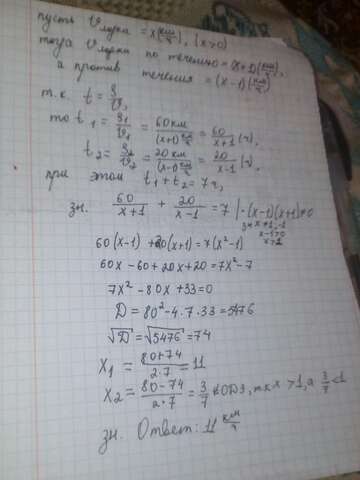 пусть V лодки = x (км/ч), (x>0)
тогда V лодки по течению = (x+1) (км/ч),
а против течения = (x-1) (км/ч)
т.к. t = S/V,
то t₁ = S₁/V₁ = 60 км/(x+1) км/ч = 60/(x+1) (ч),
t₂ = S₂/V₂ = 20 км/(x-1) км/ч = 20/(x-1) (ч),
при этом t₁ + t₂ = 7 ч,
зн. 60/(x+1) + 20/(x-1) = 7 | · (x-1)(x+1) ≠ 0
зн x ≠ 1, -1
x-1>0
x>1
60(x-1) + 20(x+1) = 7(x²-1)
60x - 60 + 20x + 20 = 7x² - 7
7x² - 80x + 33 = 0
D = 80² - 4·7·33 = 5476
√D = √5476 = 74
x₁ = (80+74)/(2·7) = 11
x₂ = (80-74)/(2·7) = 3/7 ∉ ОДЗ, т.к x >1, а 3/7 < 1
зн. Ответ: 11 км/ч